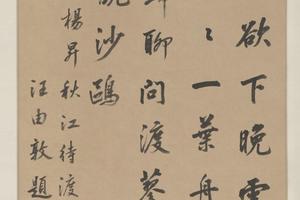 欲下晚雲
〻一葉舟
聊問渡蓼
沙鷗
楊昇秋江待渡
汪由敦題